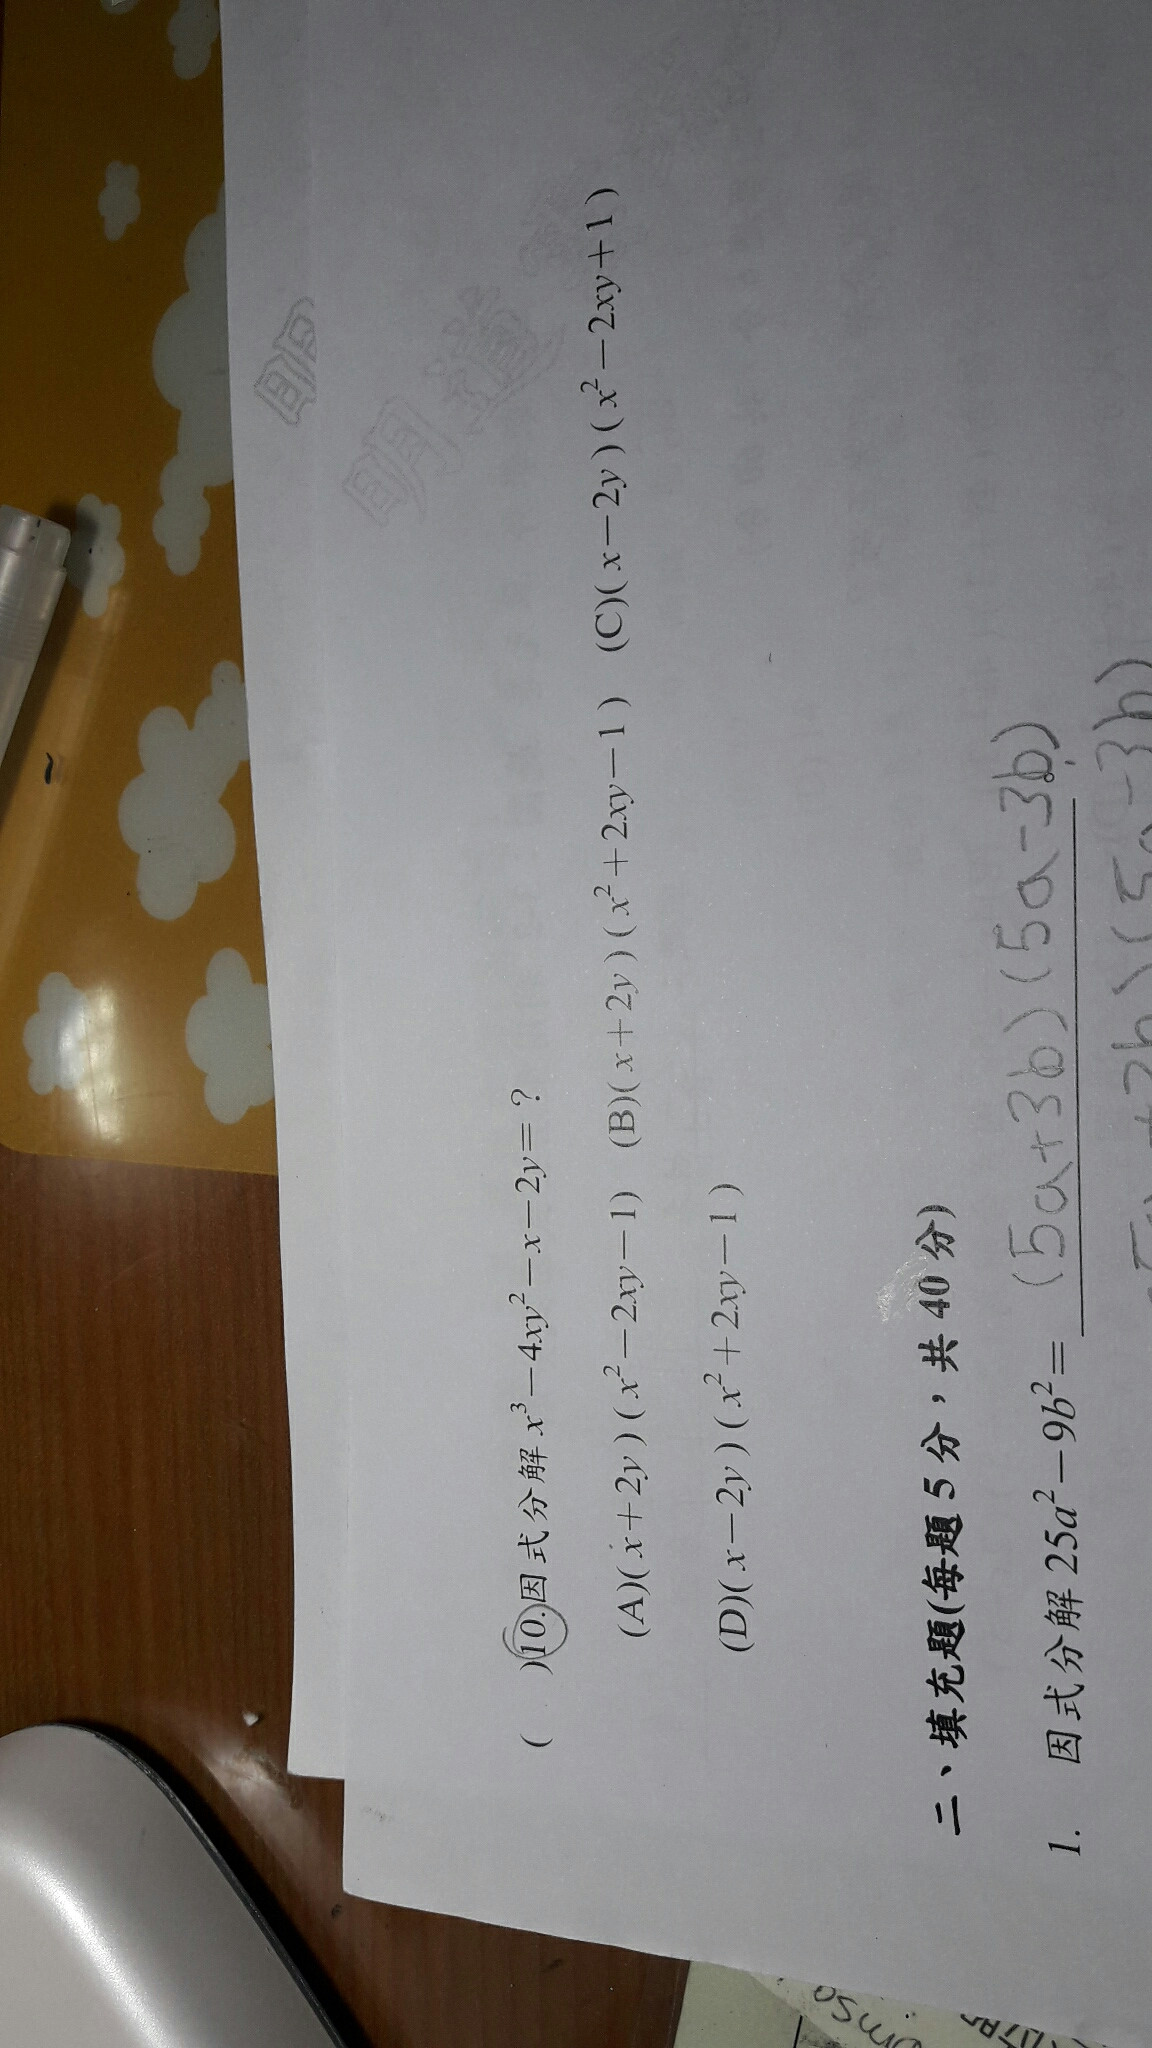 (　)10.因式分解 x³－4xy²－x－2y＝?
(A)(x＋2y)(x²－2xy－1) (B)(x＋2y)(x²＋2xy－1) (C)(x－2y)(x²－2xy＋1)
(D)(x－2y)(x²＋2xy－1)
二、填充題(每題5分，共40分)
1. 因式分解 25a²－9b²＝ (5a+3b)(5a-3b)。
明
明道